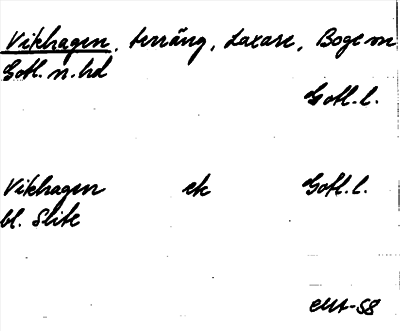 Vikhagen, terräng, Laxare, Boge sn
Gotl. n. hd
Gotl. l.
Vikhagen ek Gotl. l.
bl. Slite